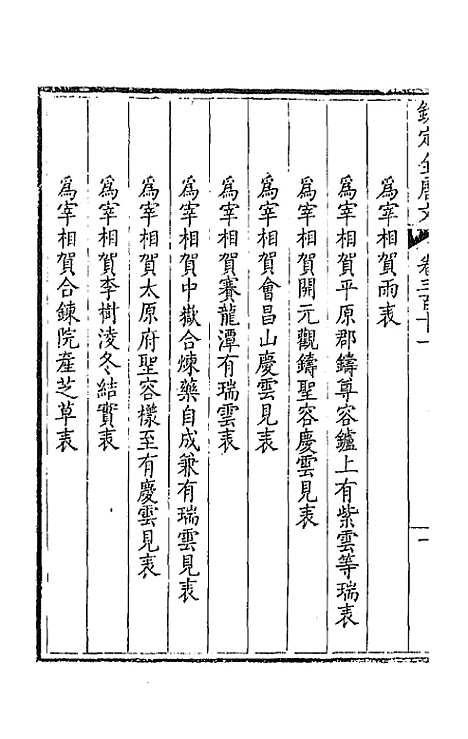 欽定全唐文 卷三百十一 一
爲宰相賀雨表
爲宰相賀平原郡鑄尊容鑪上有紫雲等瑞表
爲宰相賀開元觀鑄聖容慶雲見表
爲宰相賀會昌山慶雲見表
爲宰相賀賽龍潭有瑞雲表
爲宰相賀中嶽合煉藥自成兼有瑞雲見表
爲宰相賀太原府聖容樣至有慶雲見表
爲宰相賀李樹淩冬結實表
爲宰相賀合鍊院產芝草表